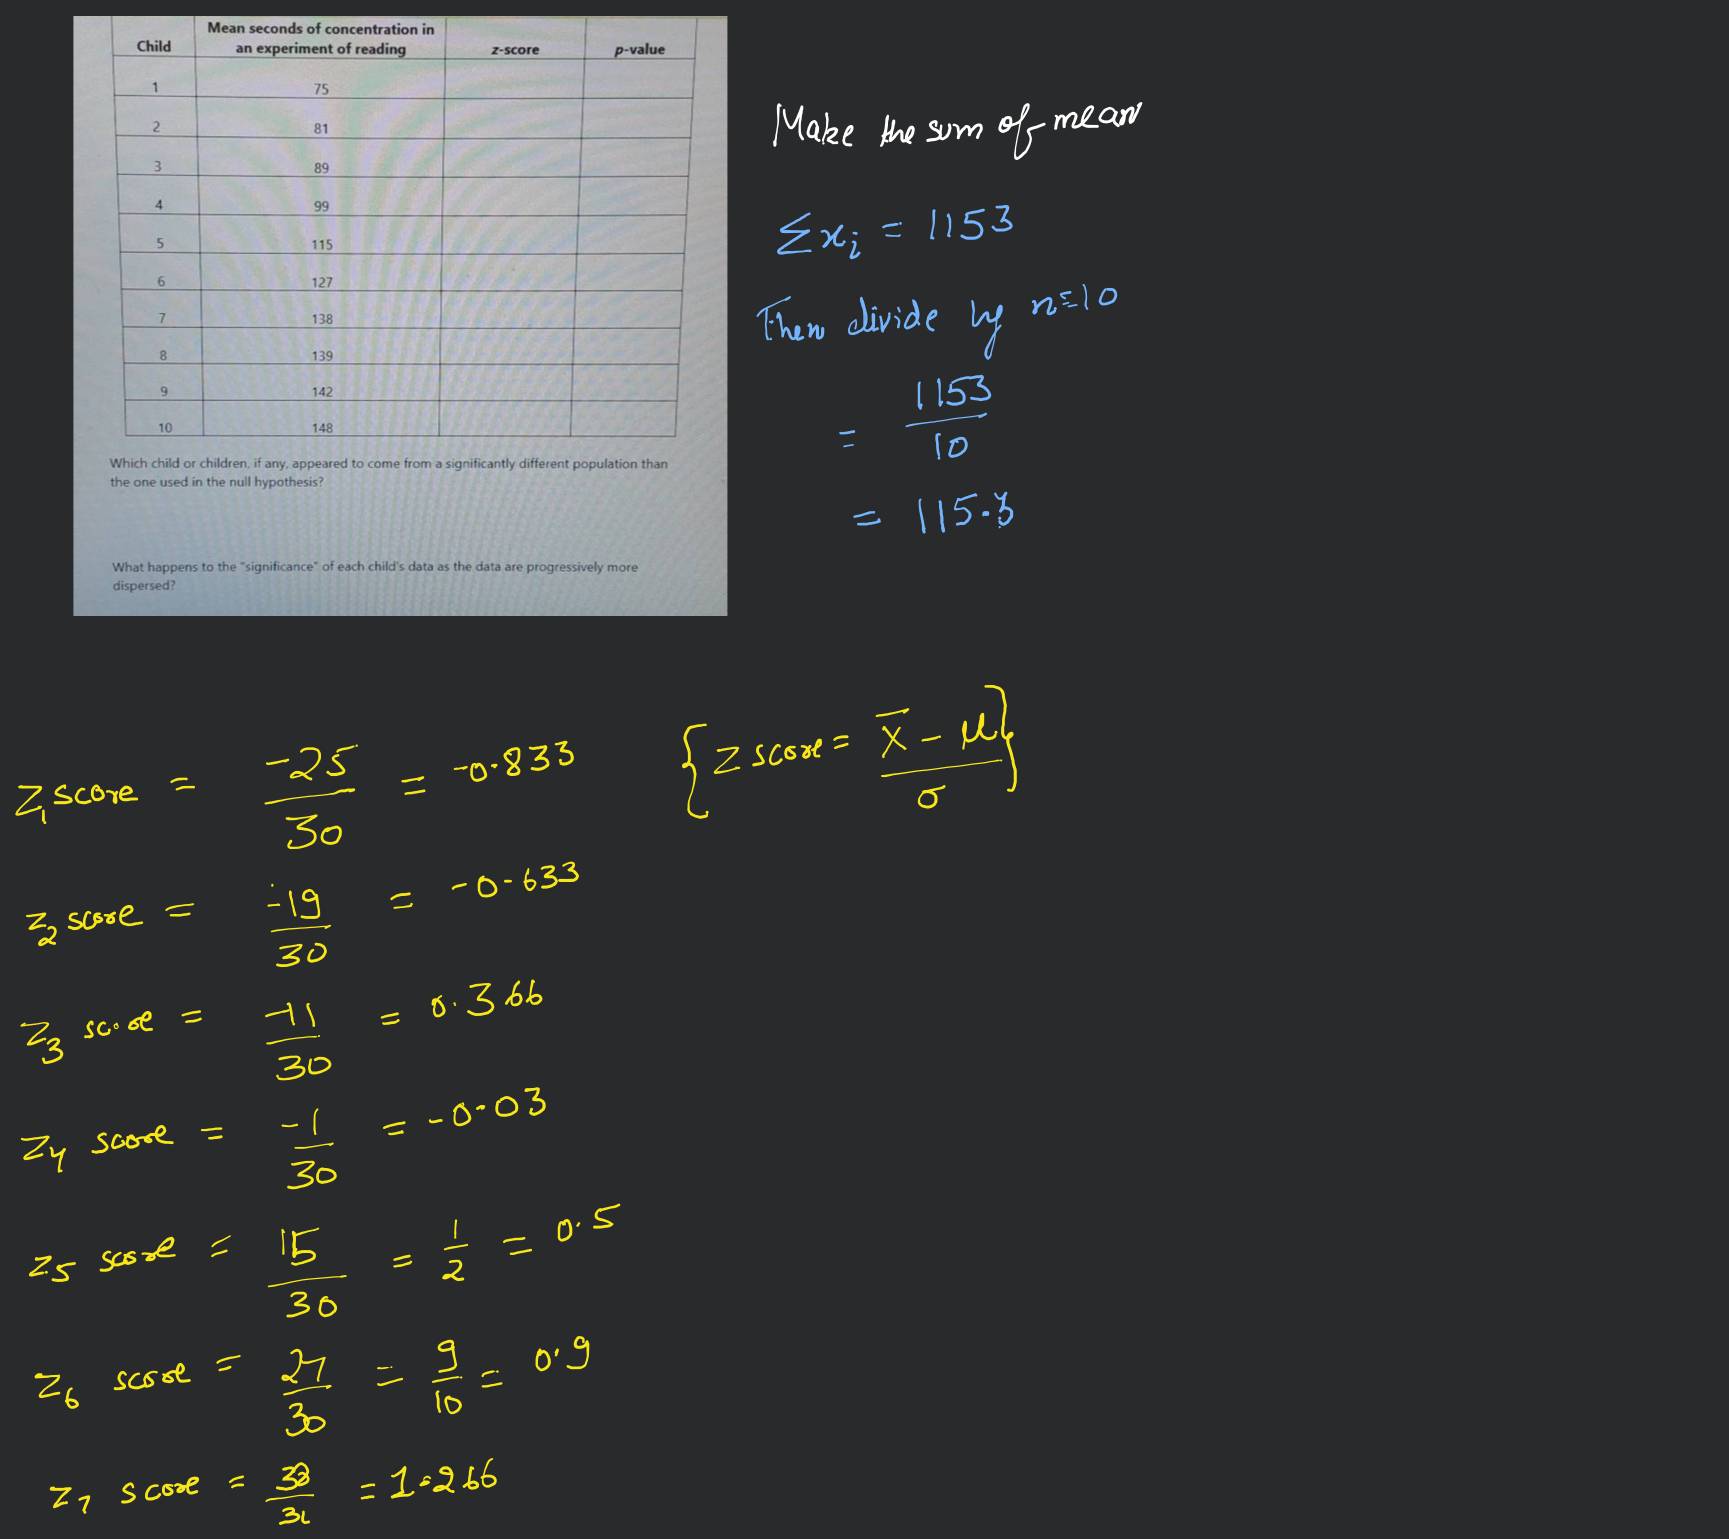 Child Mean seconds of concentration in an experiment of reading z-score p-value
1 75
2 81
3 89
4 99
5 115
6 127
7 138
8 139
9 142
10 148
Which child or children, if any, appeared to come from a significantly different population than
the one used in the null hypothesis?
What happens to the "significance" of each child's data as the data are progressively more
dispersed?
Make the sum of mean
Σxi = 1153
Then divide by n=10
= 1153/10
= 115.3
Z1 score = -25/30 = -0.833 {Z score = (x̄ - μ)/σ}
Z2 score = -19/30 = -0.633
Z3 score = -11/30 = 0.366
Z4 score = -1/30 = -0.03
Z5 score = 15/30 = 1/2 = 0.5
Z6 score = 27/30 = 9/10 = 0.9
Z7 score = 38/30 = 1.266